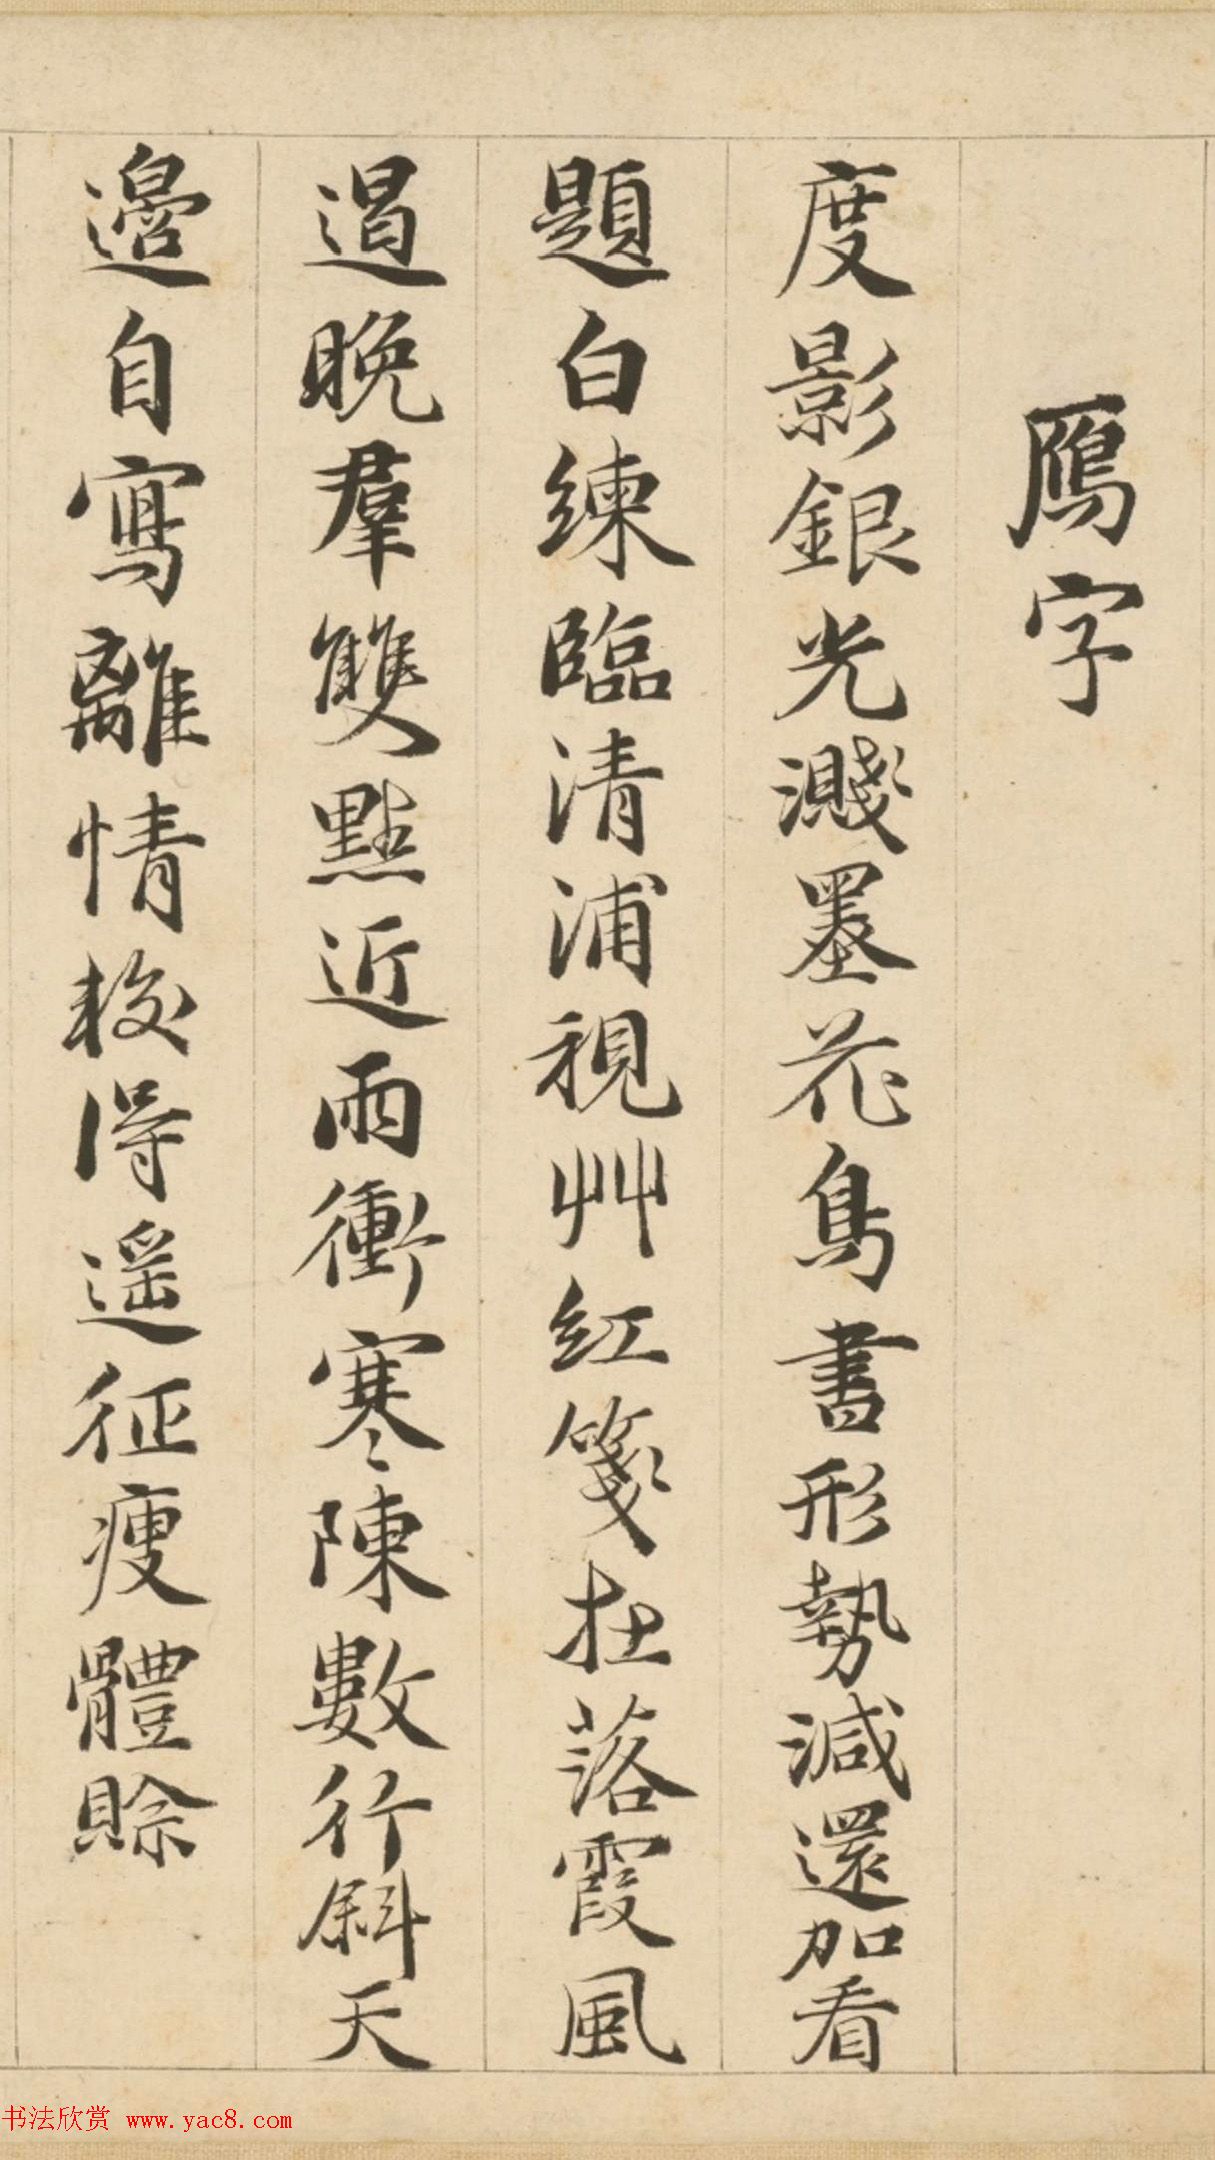 鴈字
度影銀光濺墨花鳥書形勢減還加看
題白練臨清浦視艸紅箋在落霞風
過晚羣雙點近雨衝寒陳數行斜天
邊自寫離情校得遥征瘦體賒
书法欣赏 www.yac8.com